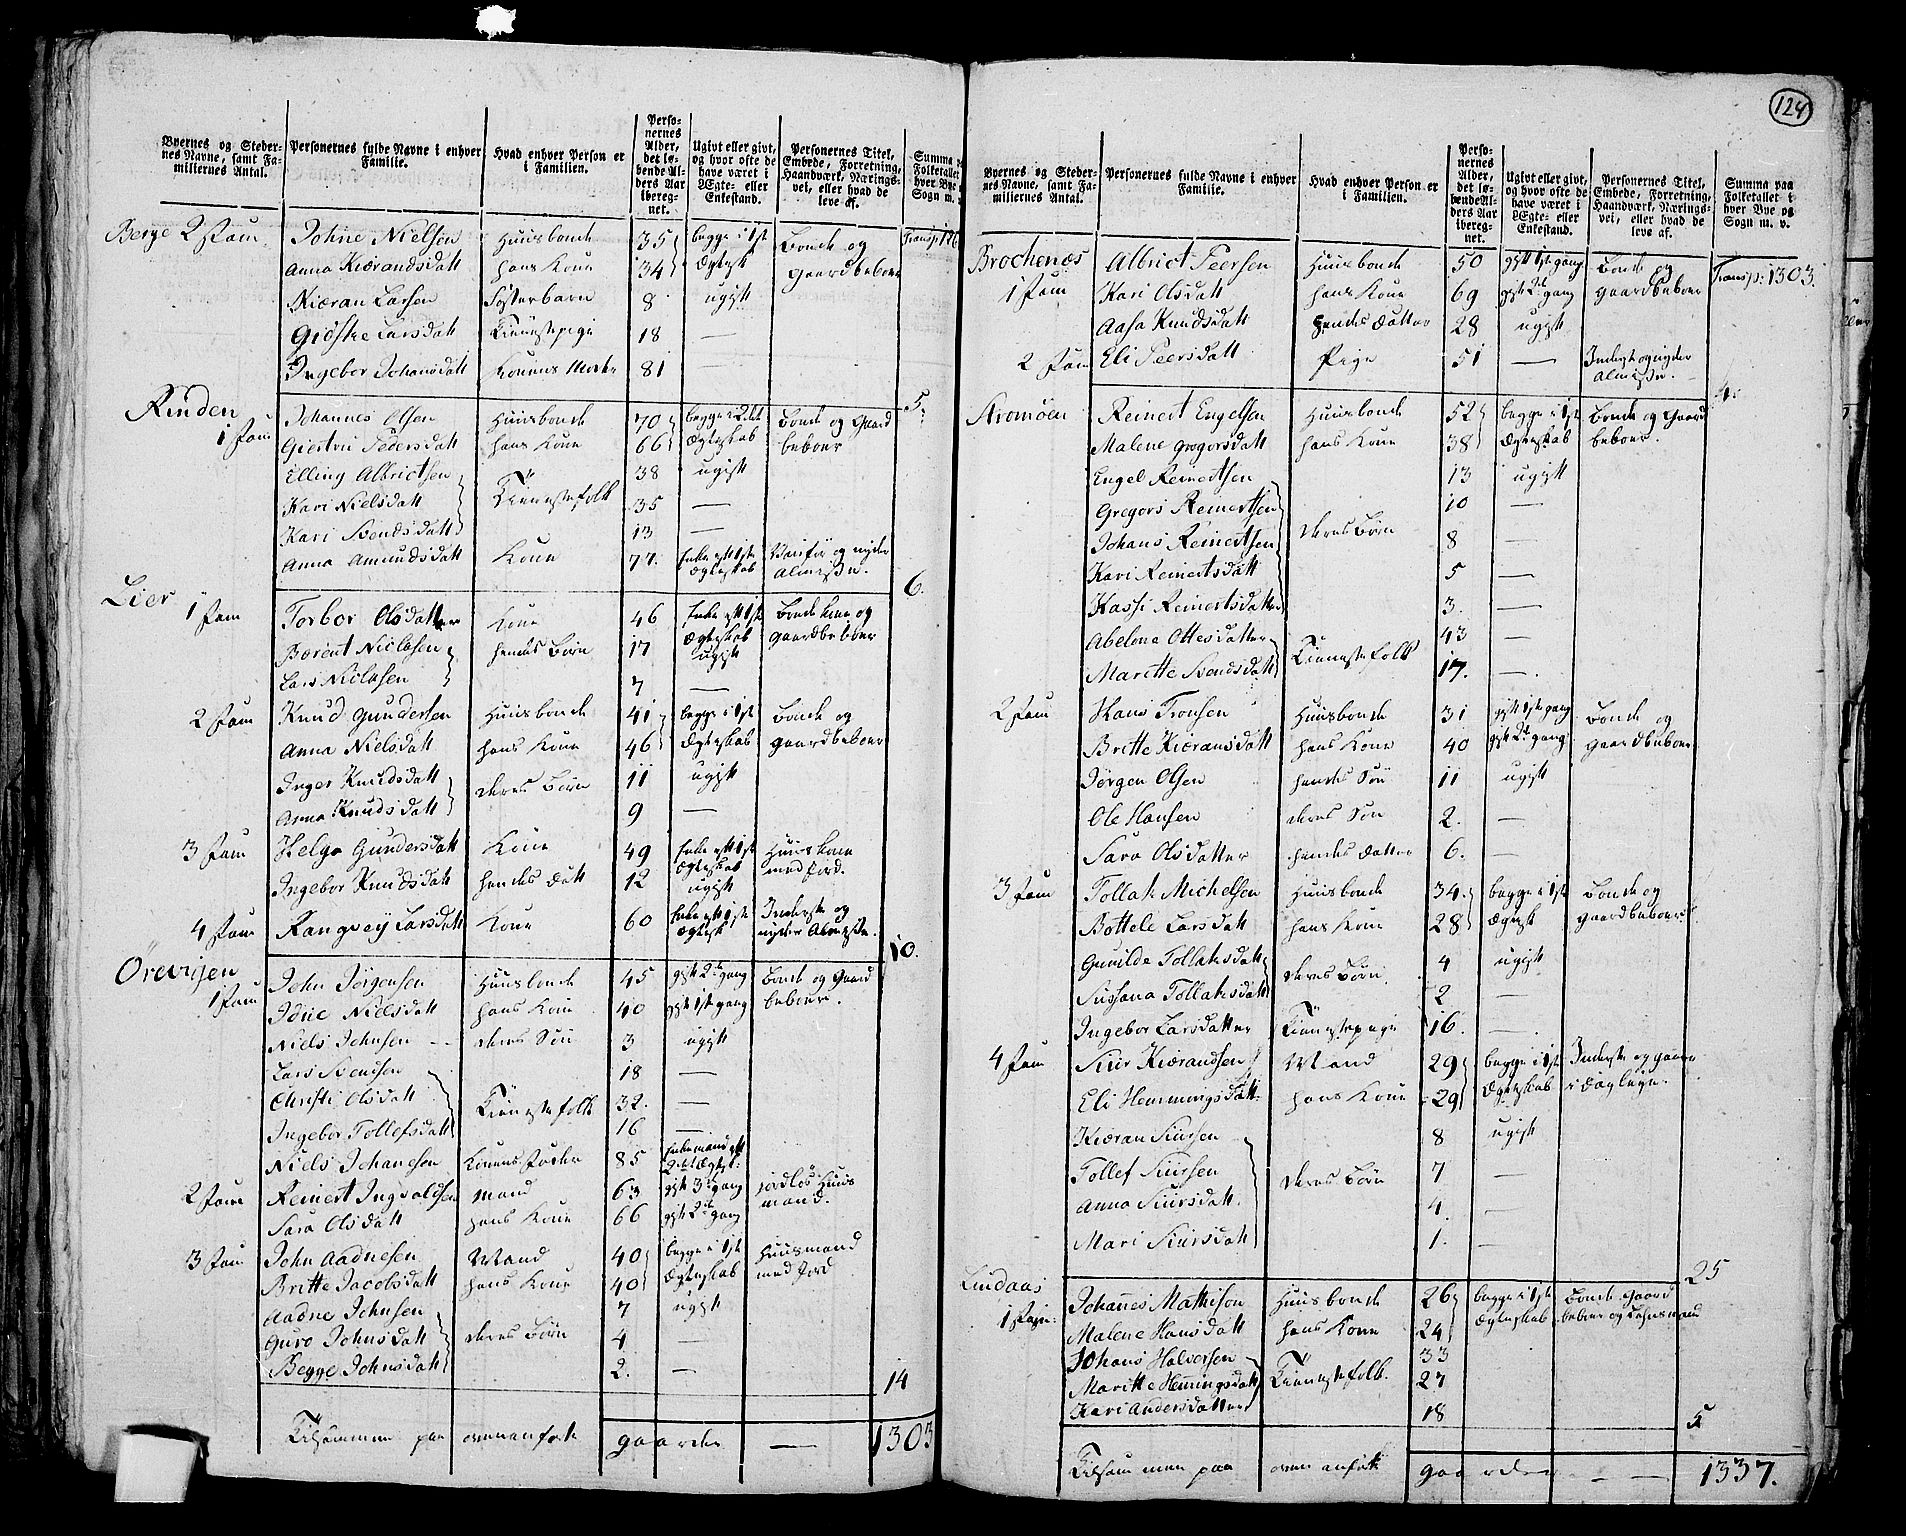 124
Byernes og Steder-
nes Navne, samt Fa-
miliernes Antal.
Personernes fulde Navne i enhver
Familie.
Hvad enhver Person er
i Familien.
Perso-
nernes
Alder,
det lø-
bende Al-
ders Aar
ibereg-
net.
Ugivt eller givt,
og hvor ofte de
have været i
Ægte- eller
Enkestand.
Personernes Titel,
Embede, Forretning,
Haandværk, Nærings-
vei, eller hvad de
leve af.
Summa pa
Folketallet
hver Bye
Sogn m.
Berge 2 Fam Johne Nielsen Huusbonde 35 begge i 1ste Bonde og Transp:
Anna Kiærandsdatt hans Kone 34 Ægtesk gaardbeboer
Kiæran Larsen Søsterbarn 8 ugift
Giöske Larsdatt Tienestepige 18 —
Ingebor Johansdatt Konens Moder 81 —
5.
Rinden Johannes Olsen Huusbonde 70 begge i 2det Bonde og Gaard
1 Fam Giertru Pedersdatt hans Kone 66 Ægteskab beboer
Elling Albrictsen 38 ugift
Kari Nielsdatt Tienestefolk 35 —
Kari Svendsdatt 13 —
Anna Amundsdatt Kone 77. Enke eft 1ste Vanför og nyder
Ægteskab Almisse.
6.
Lier
1 Fam Torbor Olsdatter Kone 46 Enke eft 1ste Bonde kone og
Berent Niclasen hendes Börn 17 Ægteskab gaardbeboer
ugift
Lars Niclasen 7 —
2 Fam Knud Gundersen Huusbonde 41 begge i 1ste Bonde og
Anna Nielsdatt hans Kone 46 Ægteskab gaardbeboer
Inger Knudsdatt deres Börn 11 ugift
Anna Knudsdatt 9 —
3 Fam Helga Gundersdatt Kone 49 Enke eft 1ste Huuskone
Ægteskab med Jord.
Ingebor Knudsdatt hendes datt 12 ugift
4 Fam Rangvey Larsdatt Kone 60 Enke eft 1ste Inderste og
Ægtesk nyder Almisse.
10.
Örevigen John Jörgensen Huusbonde 45 gift 2de gang Bonde og Gaard
1 Fam Idne Nielsdatt hans Kone 40 gift 1ste gang beboer.
Niels Johnsen deres Sön 3 ugift
Lars Svendsen 18 —
Christi Olsdatt Tienestefolk 32. —
Ingebor Tollefsdatt 16 —
Niels Johansen Konens Fader 85 Enkemand eft
2det Ægtesk:
2 Fam Reinert Ingvaldsen mand 63 gift 3de gang jordlös Huus
Sara Olsdatt hans Kone 66 gift 2de gang mand.
3 Fam John Aadnesen Mand 40 begge i 1ste Huusmand
Britte Jacobsdatt hans Kone 40 Ægteskab med Jord
Aadne Johnsen 7 ugift
Guro Johnsdatt deres Börn 4 —
Begge Johnsdatt 2. —
14
Tilsammen paa ovenanförte gaarder — 1303
Byernes og Steder-
nes Navne, samt Fa-
miliernes Antal.
Personernes fulde Navne i enhver
Familie.
Hvad enhver Person er
i Familien.
Perso-
nernes
Alder,
det lø-
bende Al-
ders Aar
ibereg-
net.
Ugivt eller givt,
og hvor ofte de
have været i
Ægte- eller
Enkestand.
Personernes Titel,
Embede, Forretning,
Haandværk, Nærings-
vei, eller hvad de
leve af.
Summa paa
Folketallet i
hver Bye og
Sogn m. v.
Brochenæs Albrict Peersen Huusbonde 50 gift 1ste gang Bonde og Transp: 1303.
1 Fam Kari Olsdatt hans Kone 69 gift 2de gang gaardbeboer
Aasa Knudsdatt hendes datter 28 ugift
2 Fam Eli Peersdatt Pige 51 — Inderst og nyder
Almisse.
4.
Stromöen Reinert Engelsen Huusbonde 52 begge i 1ste Bonde og Gaard
Malene Gregorsdatt hans Kone 38 Ægteskab beboer.
Engel Reinertsen 13 ugift
Gregors Reinertsen 10 —
Johans Reinertsen deres Börn 8 —
Kari Reinertsdatt 5 —
Kassi Reinertsdatter 3. —
Abelona Ottesdatter 43 —
Maritte Svendsdatt Tienestefolk 17. —
2 Fam Hans Tronsen Huusbonde 31 gift 1ste gang Bonde og
Britte Kiæransdatt hans Kone 40 gift 2de gang gaardbeboer
Jörgen Olsen hendes Sön 11 ugift
Ole Hansen deres Sön 2. —
Sara Olsdatter hendes datter 6. —
3 Fam Tollak Michelsen Huusbonde 34. begge i 1ste Bonde og
Bottele Larsdatt hans Kone 28 Ægtesk gaardbeboer
Gunilde Tollaksdatt deres Börn 4 ugift
Sussana Tollaksdatt 2 —
Ingebor Larsdatter Tienestepige 16. —
4 Fam Siur Kiærandsen Mand 29 begge i 1ste Inderste og gaaer
Eli Hemmingsdatt hans Kone 29 Ægteskab i dagleye.
Kiæran Siursen 8 ugift
Tollef Siursen deres Börn 7 —
Anna Siursdatt 4. —
Mari Siursdatt 1. —
25
Lindaas Johannes Mathison Huusbonde 26 begge i 1ste Bonde Gaard
1 Fam: Malene Hansdatt hans Kone 24 Ægteskab beboer og Lehnsmand
Johans Halversen 33
Maritte Hemingsdatt Tienestefolk. 27
Kari Andersdatter 18
5
Tilsammen paa ovenanförte gaarder — — 1337.